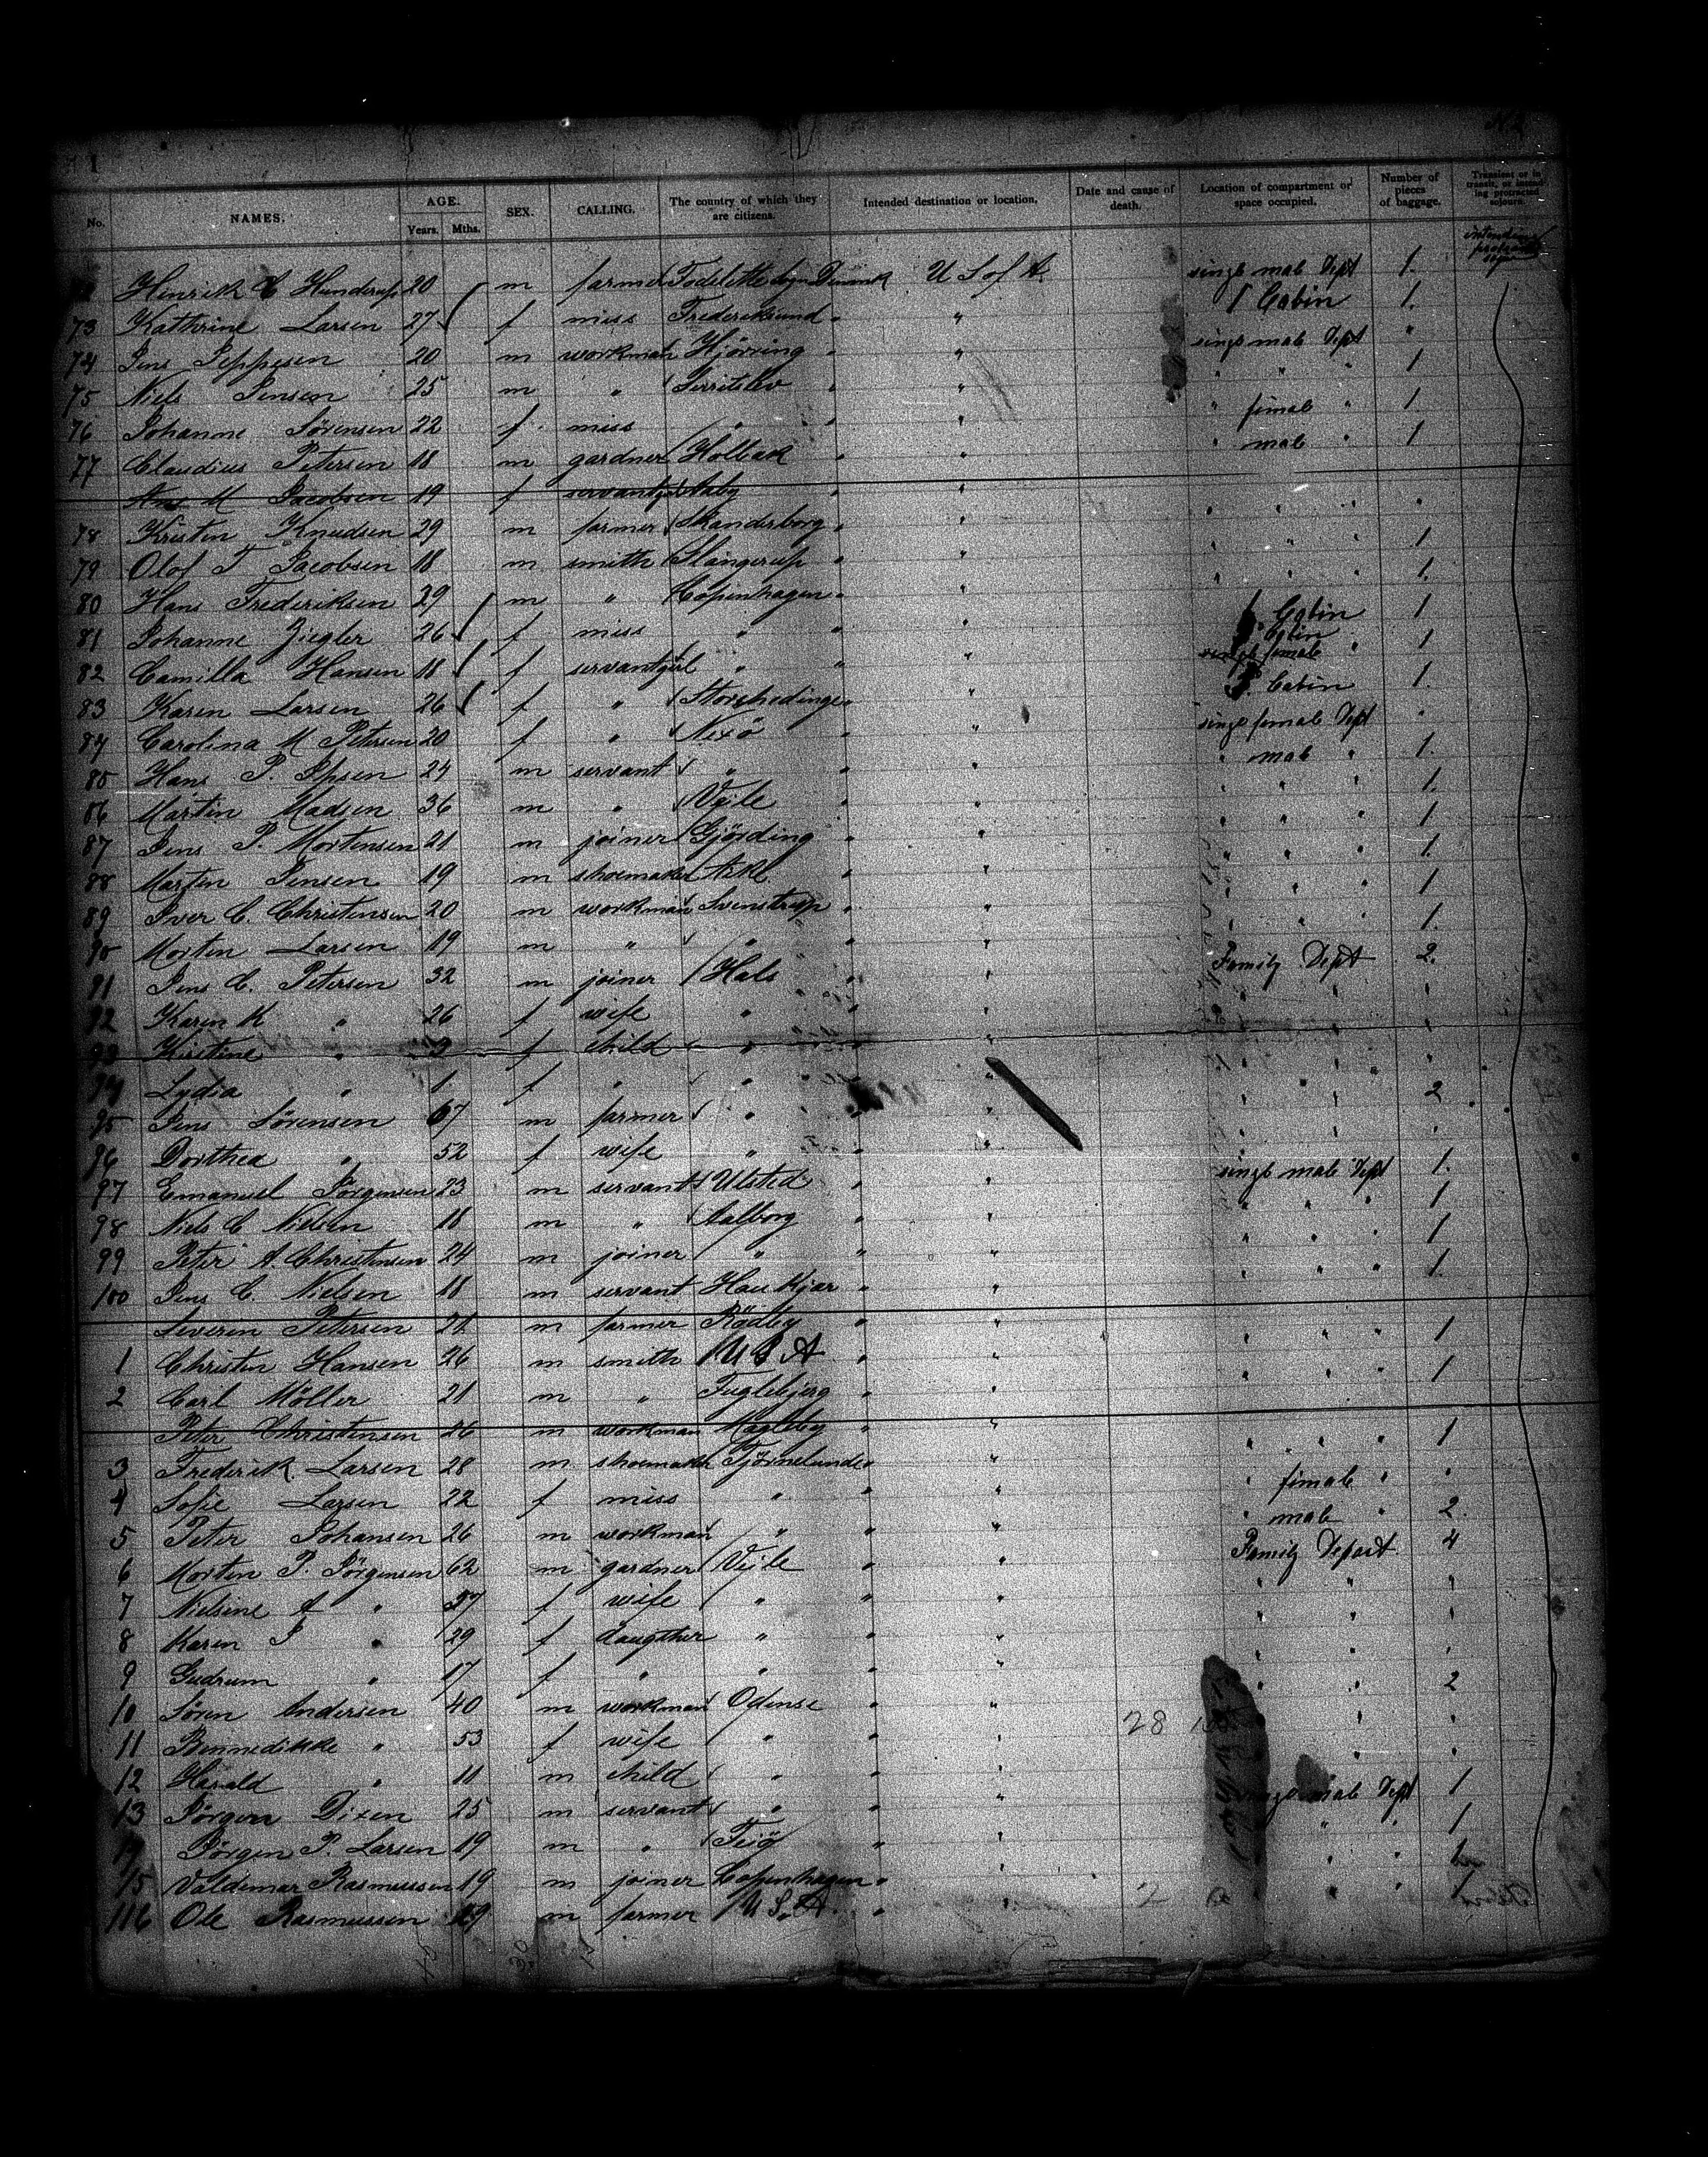 No. NAMES. AGE. Years. Mths. SEX. CALLING. The country of which they are citizens. Intended destination or location. Date and cause of death. Location of compartment or space occupied. Number of pieces of baggage. Transient or in transit, or intending protracted sojourn.
Henrik C Hunderup 20 m farmer Denmark U S of A. single male Dept 1. intending protracted
73 Kathrine Larsen 27 f miss Frederiksund " " 1 Cabin 1.
74 Jens Jeppesen 20 m workman Hjörring " " single male Dept "
75 Niels Jensen 25 m " Serritslev " " " " " 1
76 Johanne Sörensen 22 f miss " " " " female " 1.
77 Claudius Petersen 18 m gardner Holbak " " " male " 1
Ane M Jacobsen 19 f servantgirl Aaby " "
78 Kristen Knudsen 29 m farmer Skanderborg " " " " " "
79 Olof T Jacobsen 18 m smith Slangerup " " " " " 1
80 Hans Frederiksen 29 m " Copenhagen " " " " " 1.
81 Johanne Ziegler 26 f miss " " " 1. Cabin 1
82 Camilla Hansen 18 f servantgirl " " " single female " Cabin 1
83 Karen Larsen 26 f " Storehedinge " " Cabin 1.
84 Carolina M Petersen 20 f " Nexö " " single female Dept "
85 Hans P. Ipsen 24 m servant " " " " male " 1.
86 Martin Madsen 36 m " Vejle " " " " " 1.
87 Jens P. Mortensen 21 m joiner Gjörding " " " " " 1
88 Marten Jensen 19 m shoemaker " " " " " 1.
89 Iver C. Christensen 20 m workman Svenstrup " " " " " 1
90 Morten Larsen 19 m " " " " " " " 1.
91 Jens C. Petersen 32 m joiner Hals " " Family Dept 2.
92 Karen K " 26 f wife " " " " " "
93 Kirstine " f child " " " " " "
94 Lydia " 1 f " " " " " " "
95 Jens Sörensen 67 m farmer " " " " " 2
96 Dorthea " 52 f wife " " " " " "
97 Emanuel Jörgensen 23 m servant Ulsted " " single male Dept 1.
98 Niels C Nielsen 18 m " Aalborg " " " " " 1
99 Peter A. Christensen 24 m joiner " " " " " " 1
100 Jens C. Nielsen 18 m servant Hou Kjær " " " " " 1.
Severin Petersen 21 m farmer Rödby " "
1 Christen Hansen 26 m smith U S A " " " " " 1
2 Carl Möller 21 m " Fuglebjerg " " " " " 1
Peter Christensen 26 m workman Magleby " "
3 Frederik Larsen 28 m shoemaker Tjörnelunde " " " " " 1
4 Sofie Larsen 22 f miss " " " " female " "
5 Peter Johansen 26 m workman " " " " male " 2.
6 Morten P. Jörgensen 62 m gardner Vejle " " Family Depart. 4
7 Nielsine A " f wife " " " " " "
8 Karen J " 29 f daugther " " " " " "
9 Gudrum " 17 f " " " " " " "
10 Sören Andersen 40 m workman Odense " " " " 2
11 Bennedikke " 53 f wife " " " 28 " "
12 Harald " 11 m child " " " " "
13 Jörgen Dixen 25 m servant " " " single male Dept 1
14 Jörgen P. Larsen 19 m " Fejö " " " " 1
15 Valdemar Rasmussen 19 m joiner Copenhagen " " " "
116 Ole Rasmussen m farmer U S. A. " " " " 1